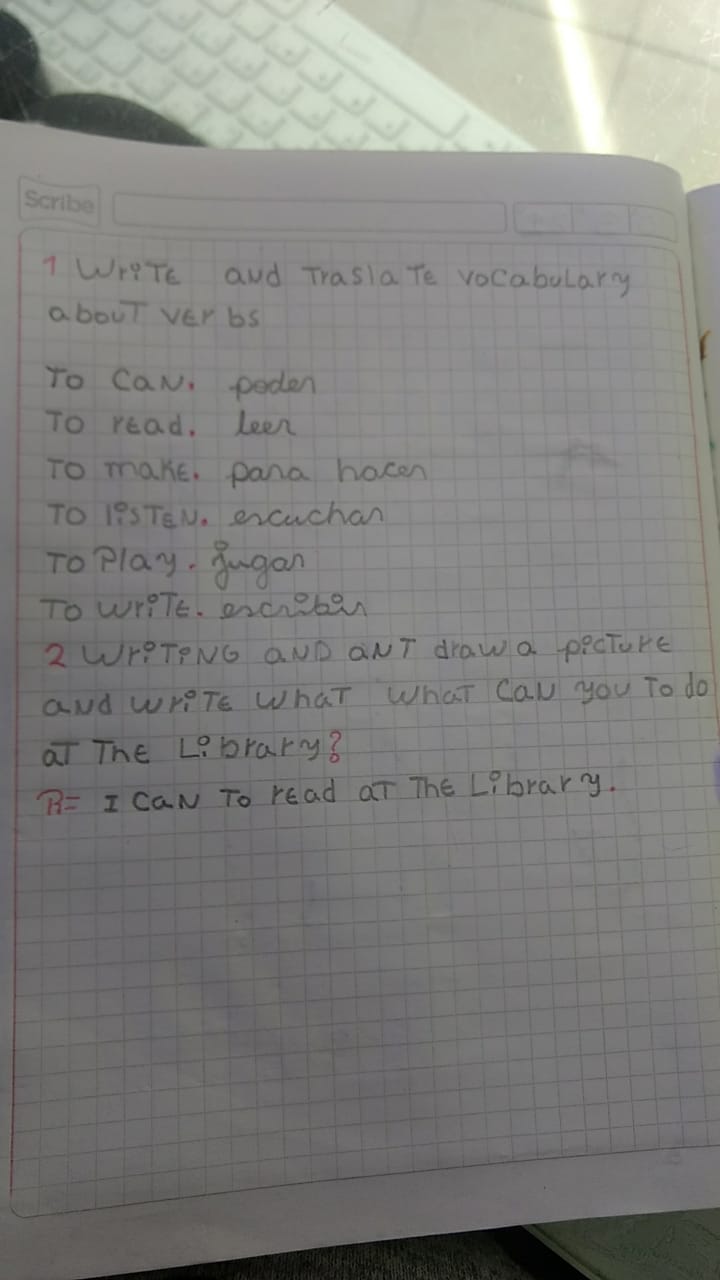 Scribe
1 Write and Traslate vocabulary
about verbs
To can. poder
To read. leer
To make. para hacer
To listen. escuchar
To Play. jugar
To write. escribir
2 Writing and ant draw a picture
and write what what can you to do
at the Library?
R= I can to read at the Library.